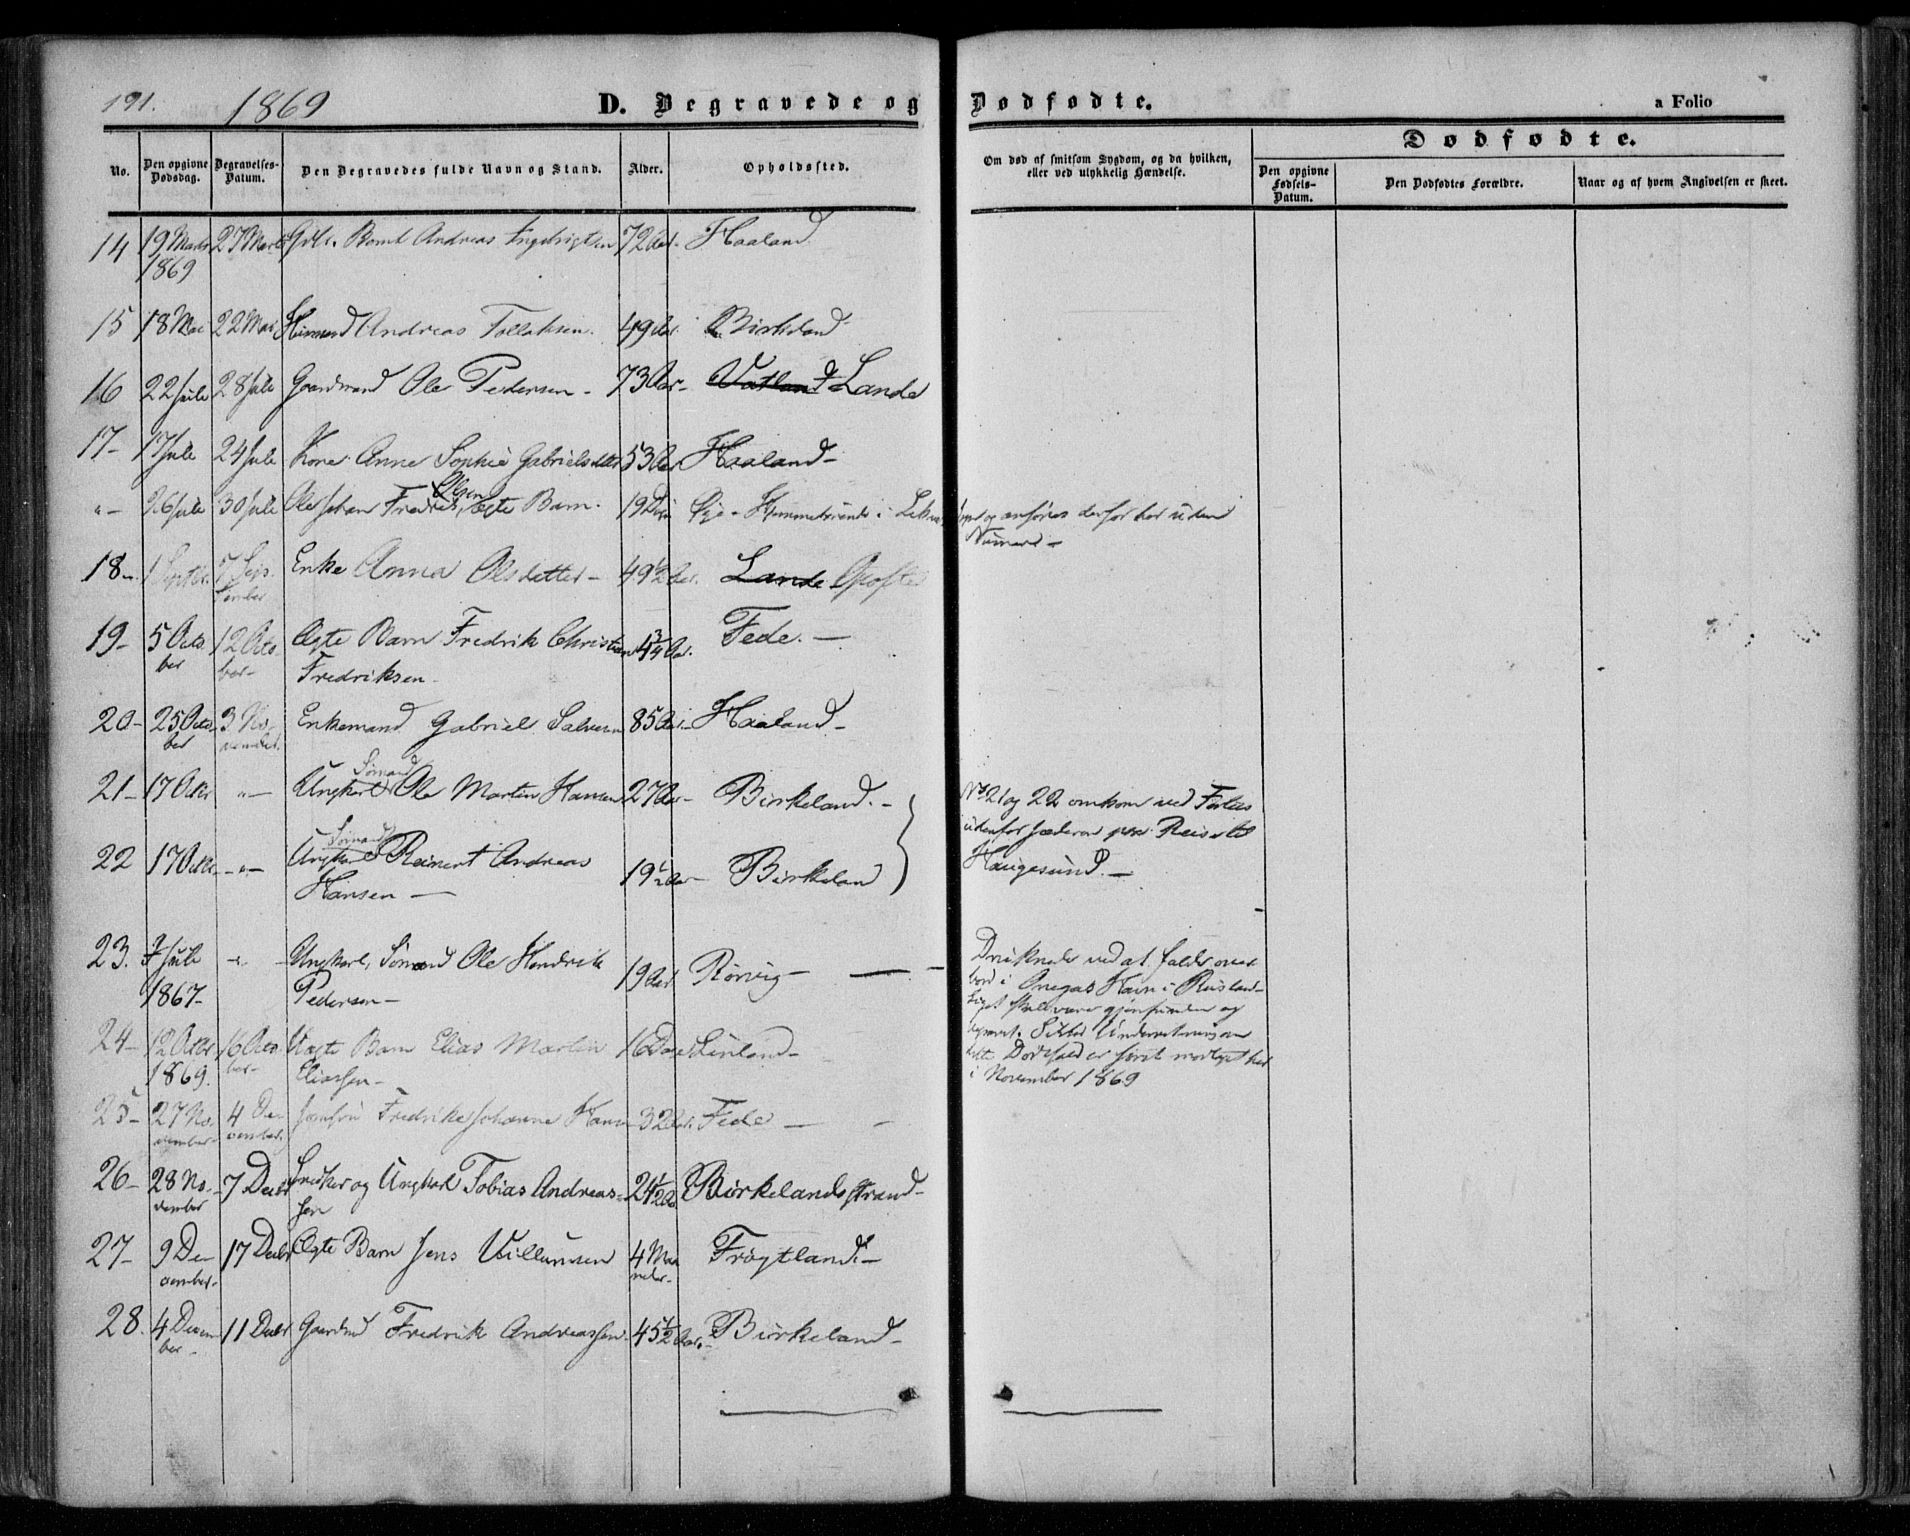 191. 1869 D. Begravede og Dødfødte. a Folio
No. Den opgivne Dødsdag. Begravelses-Datum. Den Begravedes fulde Navn og Stand. Alder. Opholdssted. Om død af smitsom Sygdom, og da hvilken, eller ved ulykkelig Hændelse. Dødfødte.
Den opgivne Fødsels-Datum. Den Dødfødtes Forældre. Naar og af hvem Angivelsen er skeet.
14 19 Marts 27 Marts Andreas 72 Aar. Haaland
1869
15 18 Mai 22 Mai Huusmand Andreas Tollaksen. 49 Aar. Birkeland
16 22 Juli 28 Juli Gaardmand Ole Pedersen - 73 Aar - Vatland Lande
17- 17 Juli 24 Juli Kone Anne Sophie Gabrielsdatter 53 Aar Haaland -
Olsen
"- 26 Juli 30 Juli Ole Johan Fredrik, Ægte Barn. 19 Dage Øye - i og anføres derfor her uden
Numer -
18- 1 Septbr. 7 Sep- Enke Anna Olsdatter - 49½ Aar. Lande
tember
19- 5 Octo- 12 Octo- Ægte Barn Fredrik Christian 4¾ Aar. Fede. -
ber ber- Fredriksen -
20- 25 Octo- 3 No- Enkemand Gabriel Salvesen 85 Aar - Haaland -
ber vember.
Sømand
21- 17 Octbr "- Ungkarl Ole Martin Hansen 27 Aar - Birkeland. - No 21 og 22 omkom ved Forlis
udenfor Jæderen paa Reise til
Sømand
22 17 Octbr. -"- Ungkarl Reinert Andreas 19½ Aar - Birkeland Haugesund. -
Hansen -
23. 7 Juli -"- Ungkarl, Sømand Ole Hendrik 19 Aar Rørvig - Druknede ved at falde over
1867- Pedersen - bord i Onegas Havn i Rusland -
skal være gjenfunden og
24- 12 Octbr 16 Octo- Uægte Barn Elias Martin 16 Dage Linland - begravet. Sikker Underretning om
1869. ber- Eliassen - dette Dødsfald er først modtaget her
i November 1869
25- 27 No- 4 De- Jomfru Fredrikke Johanne Hansen 32 Aar. Fede -
vember- cember.
26- 28 No- 7 Decbr Snedker og Ungkarl Tobias Andreas- 24½ Aar Birkelandsstrand -
vember sen
27- 9 De- 17 Decbr Ægte Barn Jens Villumsen 4 Maa- Frøytland. -
cember- neder-
28. 4 Decem- 11 Decbr Gaardmd Fredrik Andreassen - 45½ Aar. Birkeland -
ber -